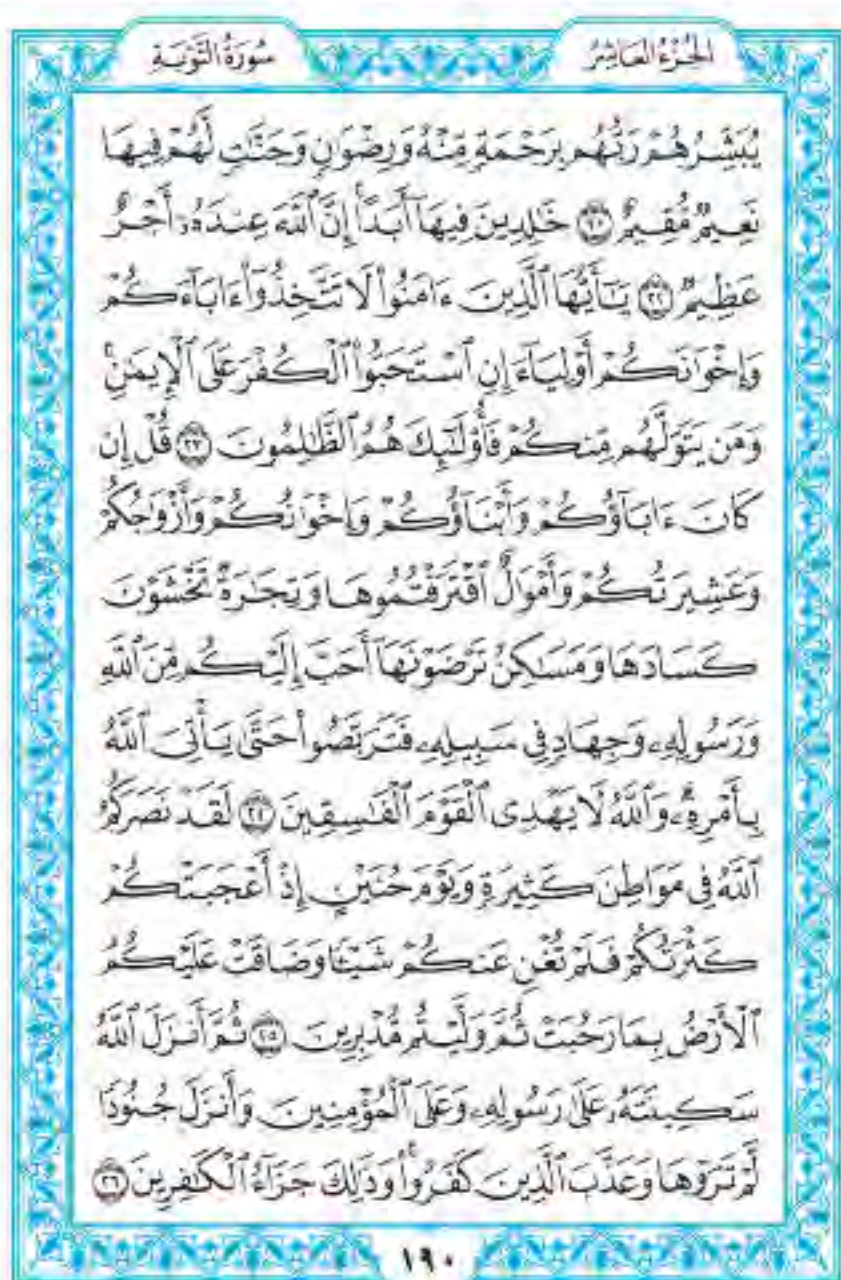 الجُزْءُ العَاشِرُ
سُورَةُ التَّوْبَةِ
يُبَشِّرُهُمْ رَبُّهُم بِرَحْمَةٍ مِّنْهُ وَرِضْوَٰنٍ وَجَنَّٰتٍ لَّهُمْ فِيهَا
نَعِيمٌ مُّقِيمٌ ٢١ خَٰلِدِينَ فِيهَآ أَبَدًا إِنَّ ٱللَّهَ عِندَهُۥٓ أَجْرٌ
عَظِيمٌ ٢٢ يَٰٓأَيُّهَا ٱلَّذِينَ ءَامَنُوا۟ لَا تَتَّخِذُوٓا۟ ءَابَآءَكُمْ
وَإِخْوَٰنَكُمْ أَوْلِيَآءَ إِنِ ٱسْتَحَبُّوا۟ ٱلْكُفْرَ عَلَى ٱلْإِيمَٰنِ ۚ
وَمَن يَتَوَلَّهُم مِّنكُمْ فَأُو۟لَٰٓئِكَ هُمُ ٱلظَّٰلِمُونَ ٢٣ قُلْ إِن
كَانَ ءَابَآؤُكُمْ وَأَبْنَآؤُكُمْ وَإِخْوَٰنُكُمْ وَأَزْوَٰجُكُمْ
وَعَشِيرَتُكُمْ وَأَمْوَٰلٌ ٱقْتَرَفْتُمُوهَا وَتِجَٰرَةٌ تَخْشَوْنَ
كَسَادَهَا وَمَسَٰكِنُ تَرْضَوْنَهَآ أَحَبَّ إِلَيْكُم مِّنَ ٱللَّهِ
وَرَسُولِهِۦ وَجِهَادٍ فِى سَبِيلِهِۦ فَتَرَبَّصُوا۟ حَتَّىٰ يَأْتِىَ ٱللَّهُ
بِأَمْرِهِۦ ۗ وَٱللَّهُ لَا يَهْدِى ٱلْقَوْمَ ٱلْفَٰسِقِينَ ٢٤ لَقَدْ نَصَرَكُمُ
ٱللَّهُ فِى مَوَاطِنَ كَثِيرَةٍ وَيَوْمَ حُنَيْنٍ إِذْ أَعْجَبَتْكُمْ
كَثْرَتُكُمْ فَلَمْ تُغْنِ عَنكُمْ شَيْـًٔا وَضَاقَتْ عَلَيْكُمُ
ٱلْأَرْضُ بِمَا رَحُبَتْ ثُمَّ وَلَّيْتُم مُّدْبِرِينَ ٢٥ ثُمَّ أَنزَلَ ٱللَّهُ
سَكِينَتَهُۥ عَلَىٰ رَسُولِهِۦ وَعَلَى ٱلْمُؤْمِنِينَ وَأَنزَلَ جُنُودًا
لَّمْ تَرَوْهَا وَعَذَّبَ ٱلَّذِينَ كَفَرُوا۟ ۚ وَذَٰلِكَ جَزَآءُ ٱلْكَٰفِرِينَ ٢٦
١٩٠